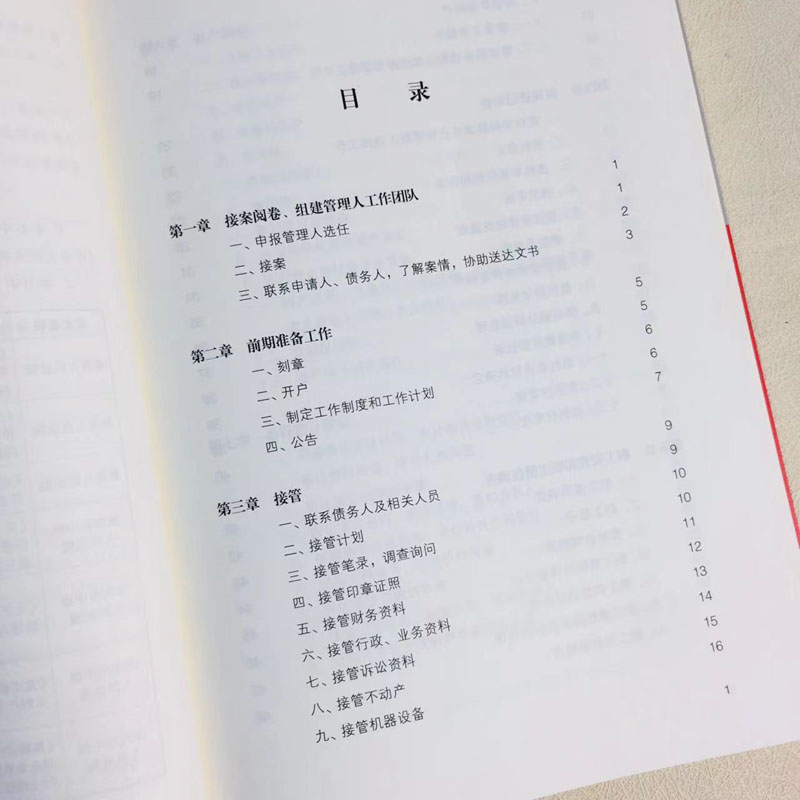 目 录
第一章 接案阅卷、组建管理人工作团队 1
一、申报管理人选任 1
二、接案 2
三、联系申请人、债务人，了解案情，协助送达文书 3
第二章 前期准备工作 5
一、刻章 5
二、开户 6
三、制定工作制度和工作计划 6
四、公告 7
第三章 接管 9
一、联系债务人及相关人员 9
二、接管计划 10
三、接管笔录，调查询问 10
四、接管印章证照 11
五、接管财务资料 12
六、接管行政、业务资料 13
七、接管诉讼资料 14
八、接管不动产 15
九、接管机器设备 16
1